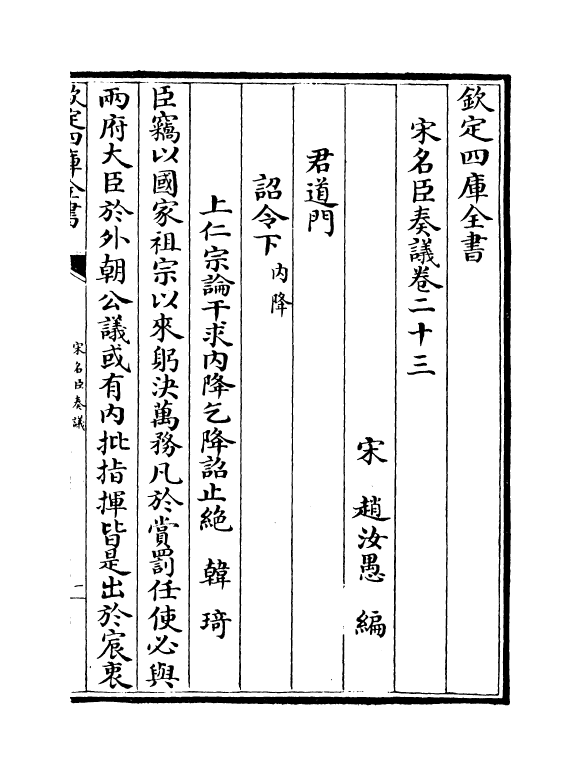 欽定四庫全書
宋名臣奏議卷二十三
宋　趙汝愚　編
君道門
詔令下 內降
上仁宗論干求內降乞降詔止絶　韓　琦
臣竊以國家祖宗以來躬決萬務凡於賞罰任使必與
兩府大臣於外朝公議或有內批指揮皆是出於宸衷
欽定四庫全書
宋名臣奏議